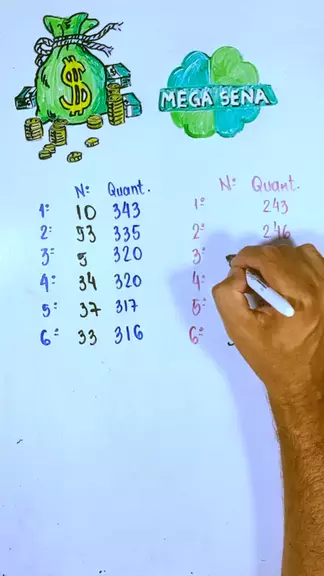 $
MEGA SENA
Nº Quant.
1º 10 343
2º 53 335
3º 5 320
4º 34 320
5º 37 317
6º 33 316
Nº Quant.
1º 243
2º 246
3º
4º
5º
6º